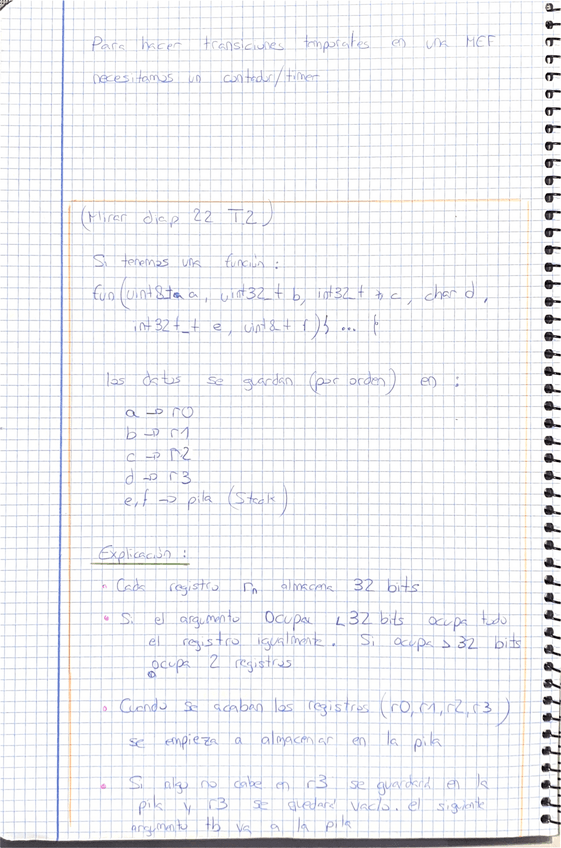 Para hacer transiciones temporales en una MEF
necesitamos un contador/timer
(Mirar diap 22 T.2)
Si tenemos una función:
fun(uint8_t a, uint32_t b, int32_t c, char d,
int32_t e, uint8_t f){ ... }
los datos se guardan (por orden) en :
a → r0
b → r1
c → r2
d → r3
e,f → pila (Stack)
Explicación :
• Cada registro rn almacena 32 bits
• Si el argumento ocupa < 32 bits ocupa todo
el registro igualmente. Si ocupa > 32 bits
ocupa 2 registros
• Cuando se acaban los registros (r0, r1, r2, r3)
se empieza a almacenar en la pila
• Si algo no cabe en r3 se guardará en la
pila y r3 se quedará vacío. el siguiente
argumento tb va a la pila